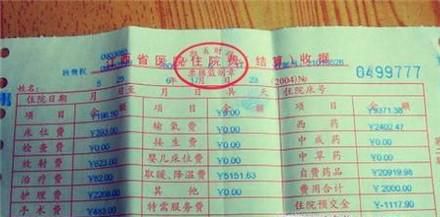 江西省医院住院费(结算)收据
收费权
0499777
姓名:
8 23 6 17 23 (2004)№
住院日期 月 日至 月 日共 天 住院床号
项目 金额 项目 金额 项目 金额
¥196.50 ¥0.00 ¥9371.38
床位费 ¥393.00 输氧费 ¥0.00 西药 ¥2402.47
检查费 ¥0.00 接生费 ¥0.00 中成药 ¥0.00
放射费 ¥823.00 婴儿床位费 ¥0.00 中草药 ¥0.00
治疗费 ¥82.00 取暖、降温费 ¥5151.63 自费药品 ¥20919.98
护理费 ¥2268.00 其他 ¥0.00 费用合计 ¥2000.00
手术费 ¥483.00 特需服务费 住院预交金 ¥-1117.90